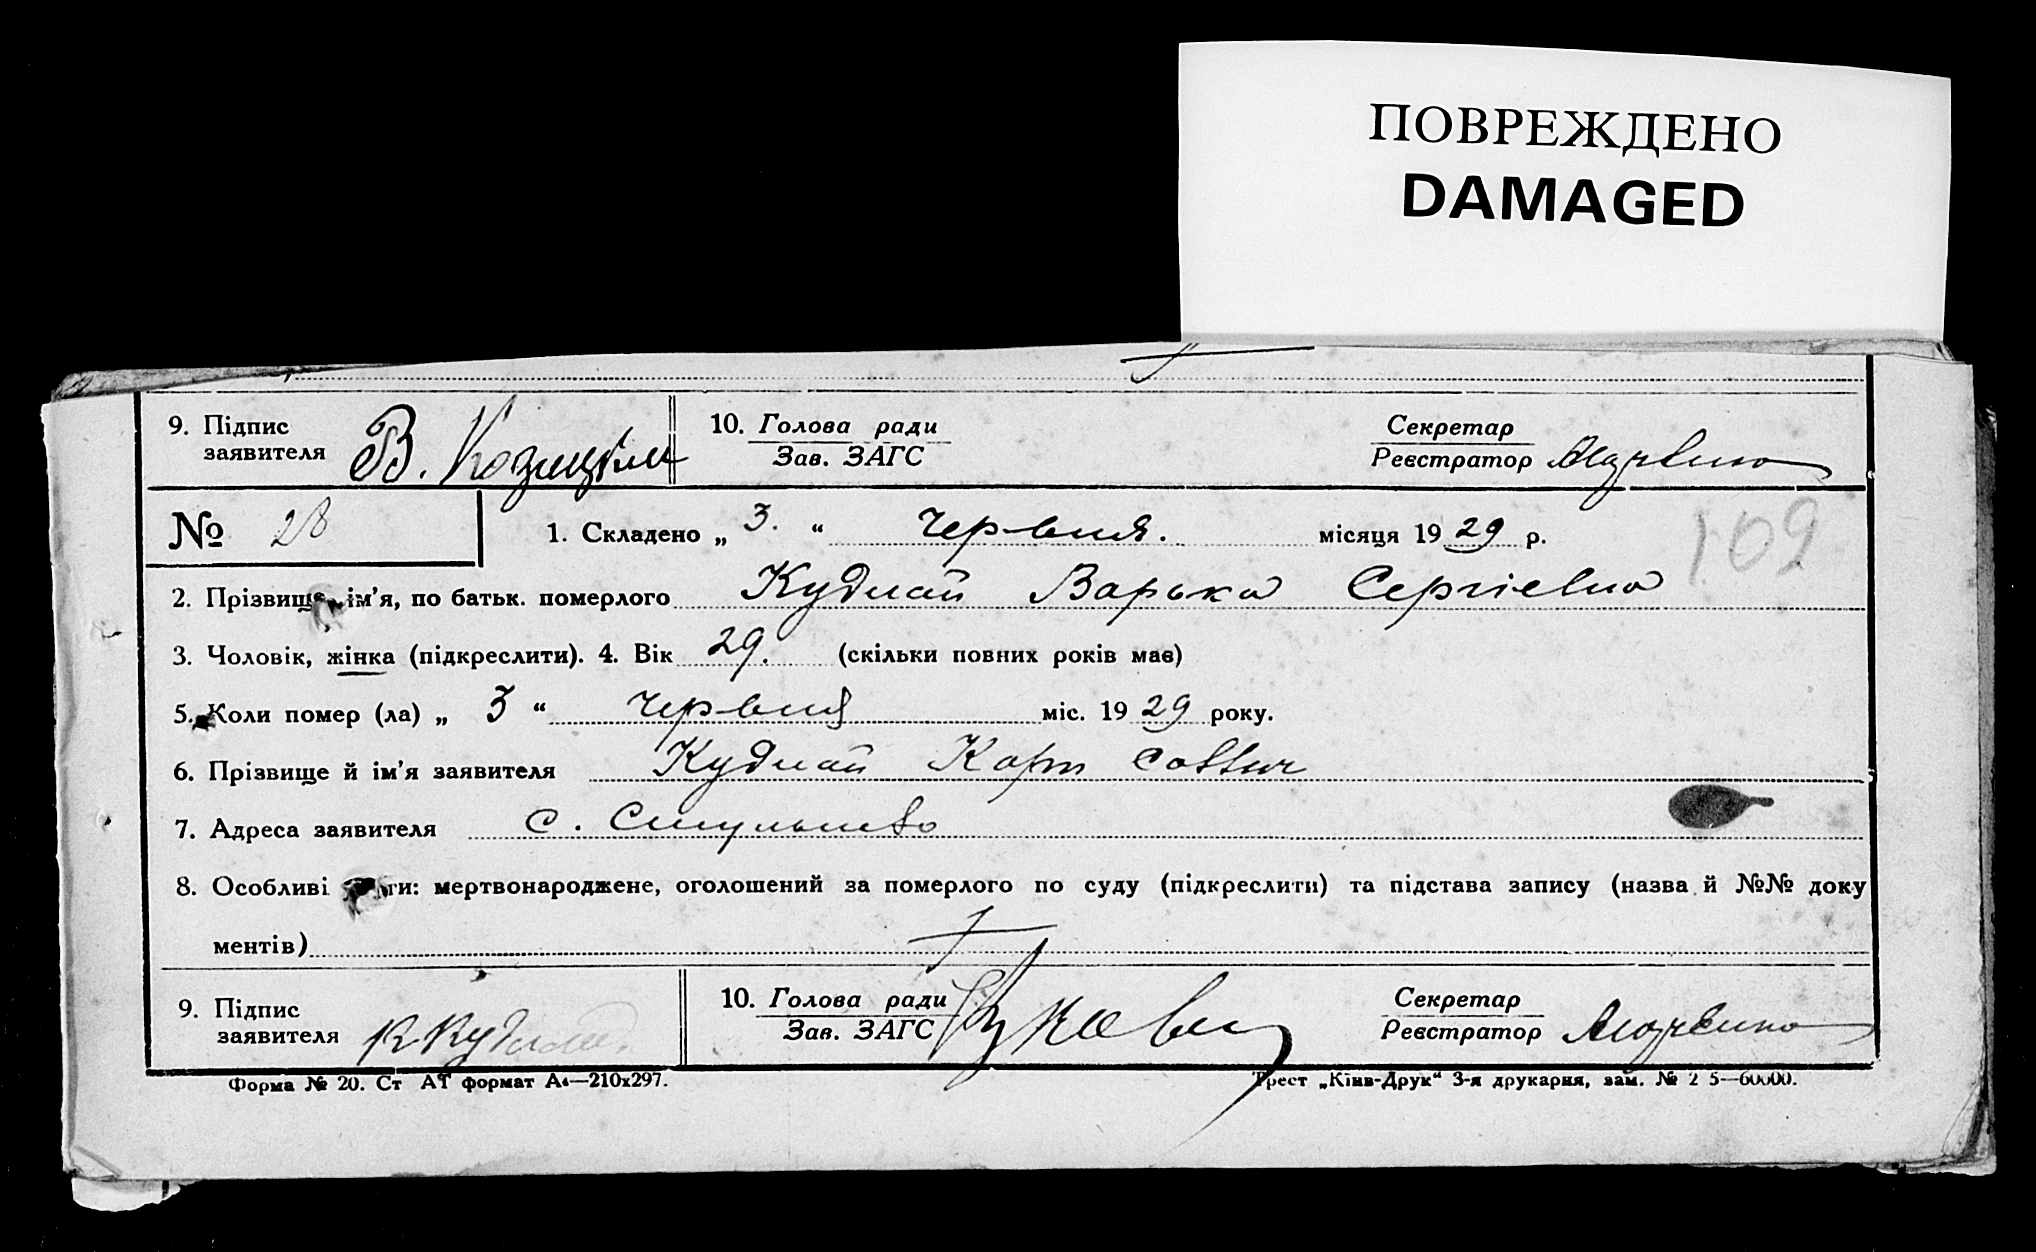 ПОВРЕЖДЕНО
DAMAGED
9. Підпис заявителя В. Козицкім 10. Голова ради Зав. ЗАГС Секретар Реєстратор
№ 28 1. Складено „ 3. “ червня. місяця 1929 р. 109
2. Прізвище, ім'я, по батьк. померлого Кудлай Варька Сергіевна
3. Чоловік, жінка (підкреслити). 4. Вік 29. (скільки повних років має)
5. Коли помер (ла) „ 3 “ червня міс. 1929 року.
6. Прізвище й ім'я заявителя Кудлай Карп Саввич
7. Адреса заявителя с.
8. Особливі ги: мертвонароджене, оголошений за померлого по суду (підкреслити) та підстава запису (назва й №№ доку
ментів)
9. Підпис заявителя К Кудлай 10. Голова ради Зав. ЗАГС Секретар Реєстратор
Форма № 20. Ст АТ формат А4—210x297. Трест „Київ-Друк“ 3-я друкарня, зам. № 2 5—60000.